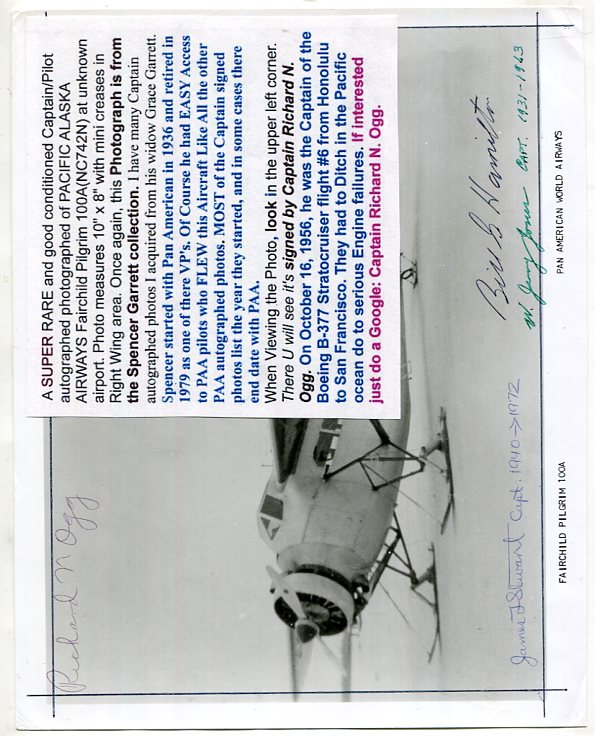 A SUPER RARE and good conditioned Captain/Pilot
autographed photographed of PACIFIC ALASKA
AIRWAYS Fairchild Pilgrim 100A(NC742N) at unknown
airport. Photo measures 10" x 8" with mini creases in
Right Wing area. Once again, this Photograph is from
the Spencer Garrett collection. I have many Captain
autographed photos I acquired from his widow Grace Garrett.
Spencer started with Pan American in 1936 and retired in
1979 as one of there VP's. Of Course he had EASY Access
to PAA pilots who FLEW this Aircraft Like All the other
PAA autographed photos. MOST of the Captain signed
photos list the year they started, and in some cases there
end date with PAA.
When Viewing the Photo, look in the upper left corner.
There U will see it's signed by Captain Richard N.
Ogg. On October 16, 1956, he was the Captain of the
Boeing B-377 Stratocruiser flight #6 from Honolulu
to San Francisco. They had to Ditch in the Pacific
ocean do to serious Engine failures. If interested
just do a Google: Captain Richard N. Ogg.
Richard N Ogg
Bill B Hamilton
W. Jerry Jones Capt. 1931-1963
James F Stewart Capt. 1940→1972
FAIRCHILD PILGRIM 100A
PAN AMERICAN WORLD AIRWAYS